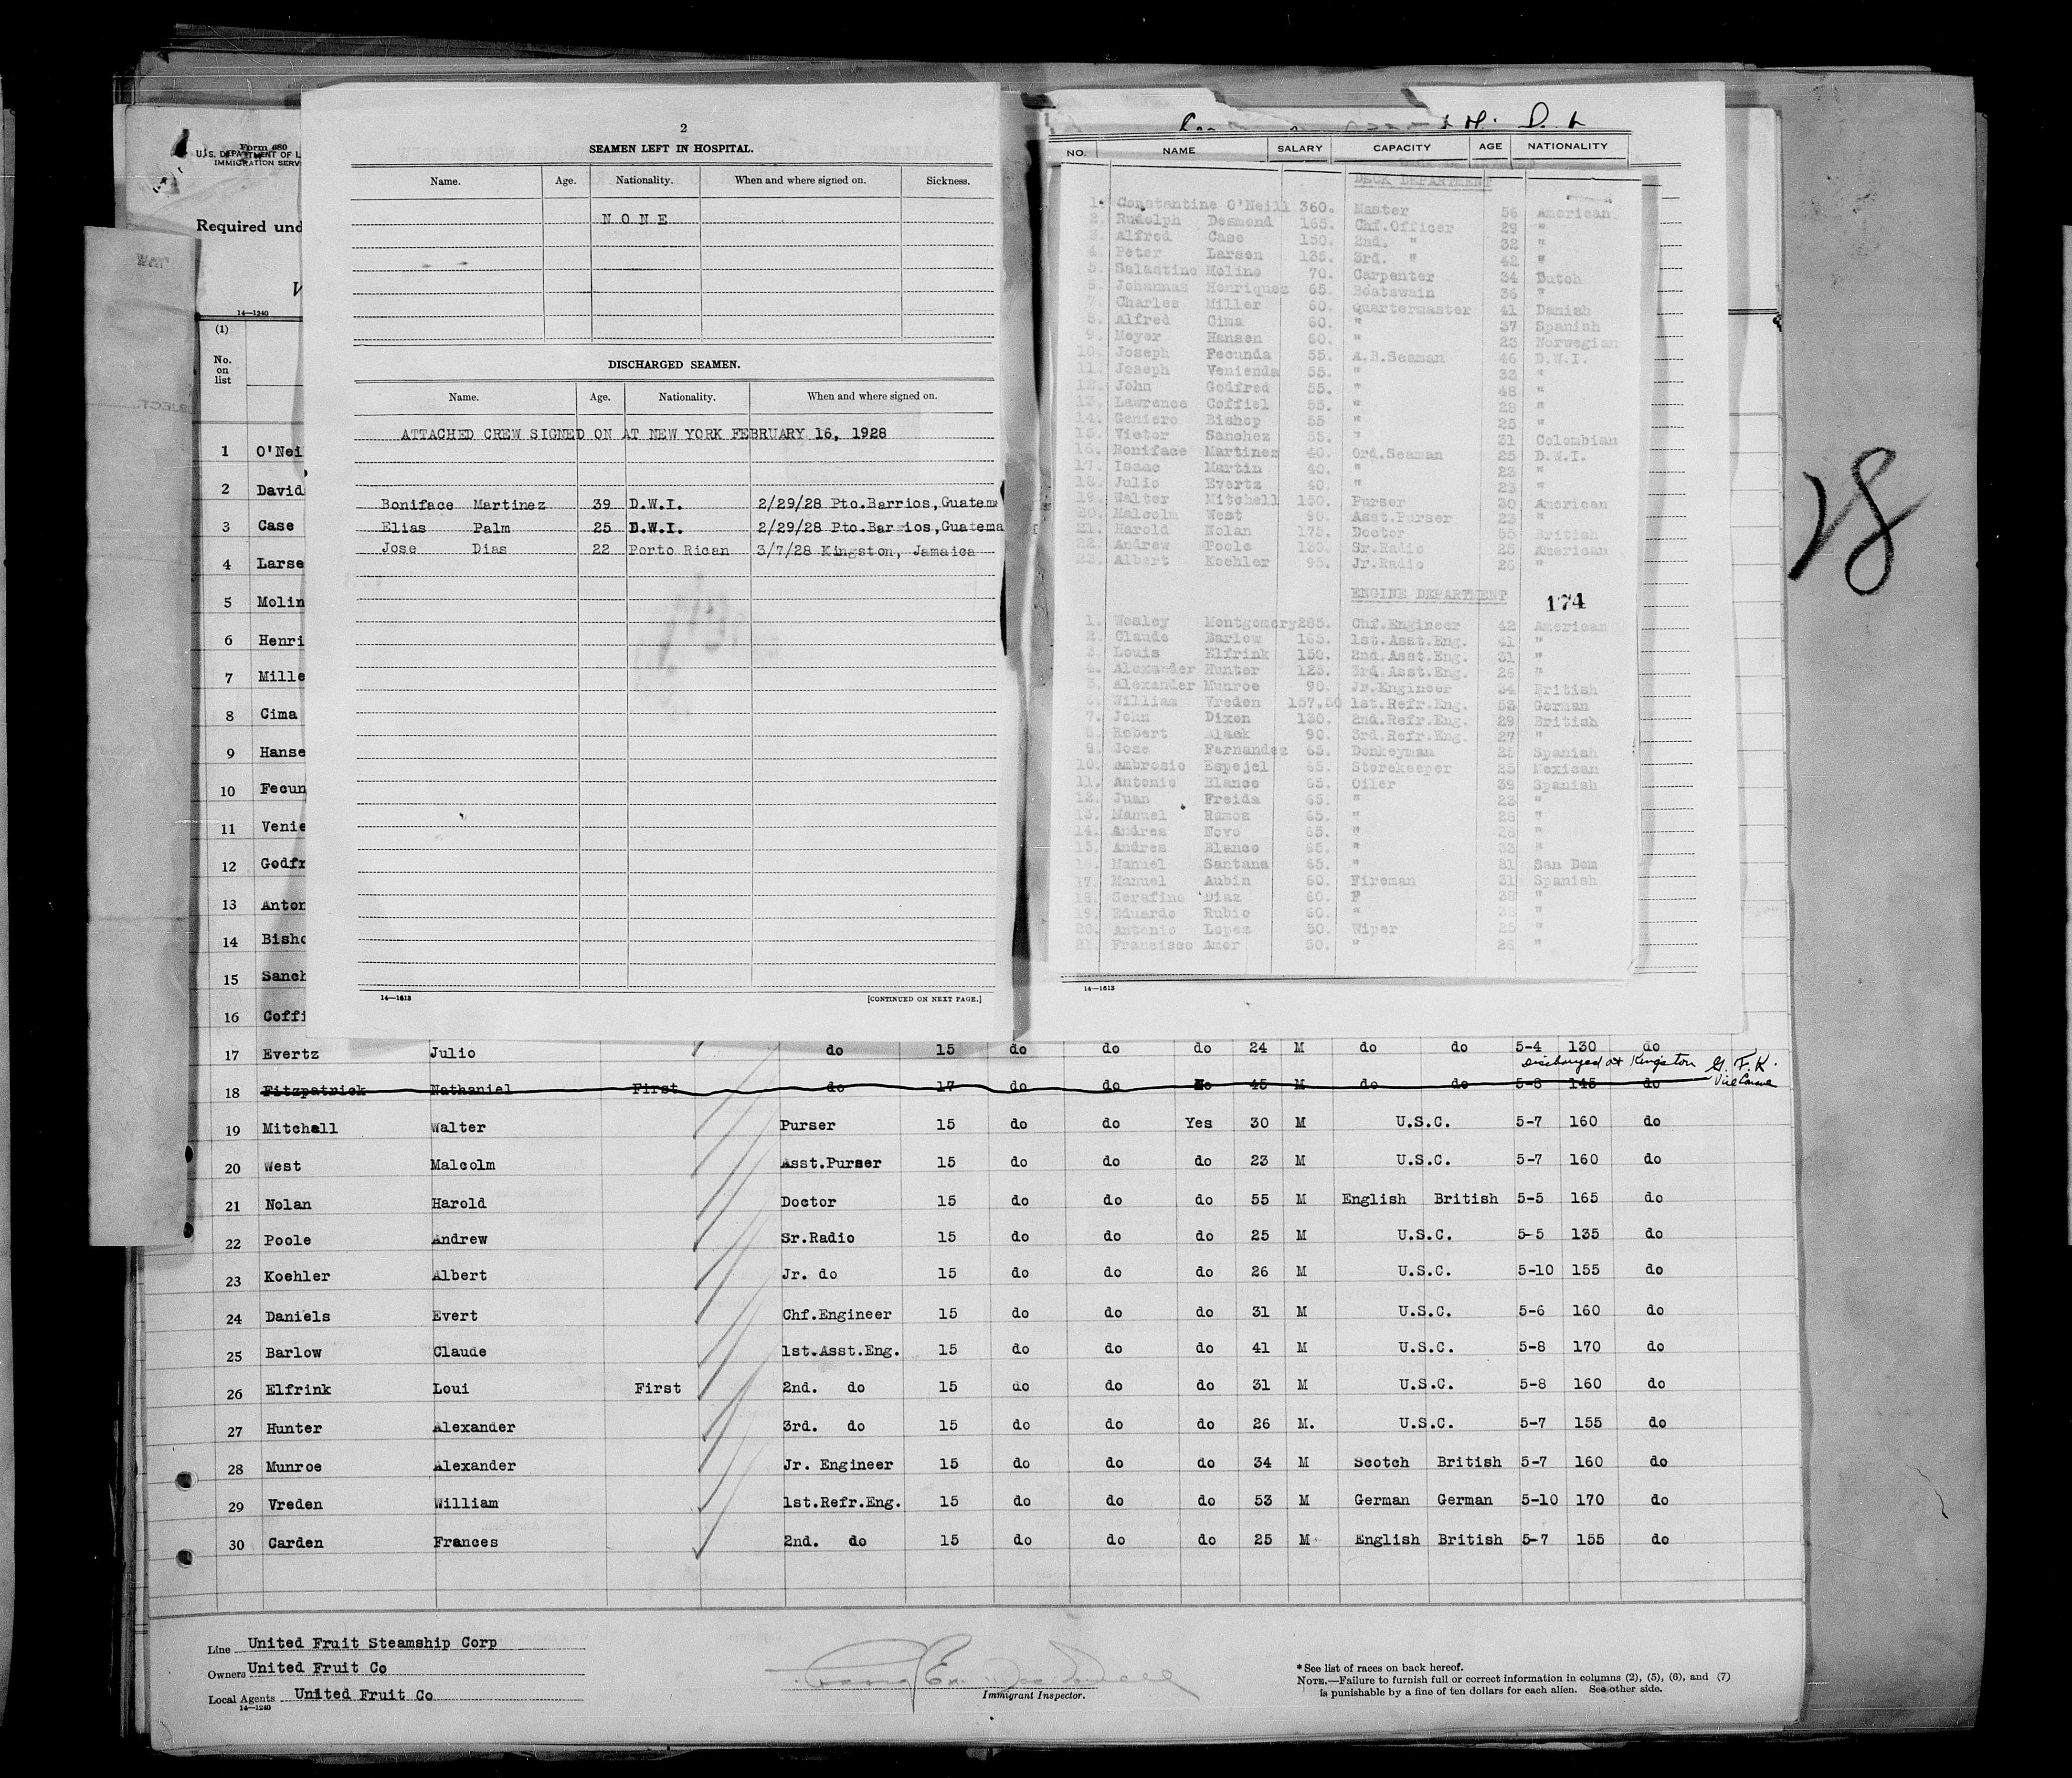 Form 680
U.S. DEPARTMENT OF L
IMMIGRATION SERV
Required und
14—1240
(1)
No.
on
list
1 O'Nei
2 David
3 Case
4 Larse
5 Molin
6 Henri
7 Mille
8 Cima
9 Hanse
10 Fecun
11 Venie
12 Godfr
13 Anton
14 Bisho
15 Sanch
16 Coffi
2
SEAMEN LEFT IN HOSPITAL.
Name. Age. Nationality. When and where signed on. Sickness.
N O N E
DISCHARGED SEAMEN.
Name. Age. Nationality. When and where signed on.
ATTACHED CREW SIGNED ON AT NEW YORK FEBRUARY 16, 1928
Boniface Martinez 39 D.W.I. 2/29/28 Pto.Barrios,Guatema
Elias Palm 25 D.W.I. 2/29/28 Pto.Barrios,Guatema
Jose Dias 22 Porto Rican 3/7/28 Kingston, Jamaica
14—1613 [CONTINUED ON NEXT PAGE.]
NO. NAME SALARY CAPACITY AGE NATIONALITY
DECK DEPARTMENT
1. Constantine O'Neill 360. Master 56 American
2. Rudolph Desmond 165. Chf.Officer 29 "
3. Alfred Case 150. 2nd. " 32 "
4. Peter Larsen 135. 3rd. " 42 "
5. Salastino Moline 70. Carpenter 34 Dutch
6. Johannas Henriquez 65. Boatswain 36 "
7. Charles Miller 60. Quartermaster 41 Danish
8. Alfred Cima 60. " 37 Spanish
9. Meyer Hansen 60. " 23 Norwegian
10. Joseph Fecunda 55. A.B.Seaman 46 D.W.I.
11. Joseph Venienda 55. " 33 "
12. John Godfred 55. " 48 "
13. Lawrence Coffiel 55. " 29 "
14. Geniero Bishop 55 " 25 "
15. Victor Sanchez 55. " 31 Colombian
16. Boniface Martinez 40. Ord.Seaman 25 D.W.I.
17. Isaac Martin 40. " 23 "
18. Julio Evertz 40. " 23 "
19. Walter Mitchell 150. Purser 30 American
20. Malcolm West 90. Asst.Purser 23 "
21. Harold Nolan 175. Doctor 55 British
22. Andrew Poole 130. Sr.Radio 25 American
23. Albert Koehler 95. Jr.Radio 26 "
ENGINE DEPARTMENT
174
1. Wesley Montgomery 285. Chf.Engineer 42 American
2. Claude Barlow 165. 1st.Asst.Eng. 41 "
3. Louis Elfrink 150. 2nd.Asst.Eng. 31 "
4. Alexander Hunter 125. 3rd.Asst.Eng. 26 "
5. Alexander Munroe 90. Jr.Engineer 34 British
6. William Vreden 157.50 1st.Refr.Eng. 53 German
7. John Dixon 130. 2nd.Refr.Eng. 29 British
8. Robert Alack 90. 3rd.Refr.Eng. 27 "
9. Jose Fernandez 65. Donkeyman 25 Spanish
10. Ambrosio Espejel 65. Storekeeper 25 Mexican
11. Antonio Blanco 65. Oiler 39 Spanish
12. Juan Freida 65. " 23 "
13. Manuel Ramos 65. " 28 "
14. Andres Novo 65. " 28 "
15. Andres Blanco 65. " 33 "
16. Manuel Santana 65. " 21 San Dom
17. Manuel Aubin 60. Fireman 31 Spanish
18. Serafino Diaz 60. 38 "
19. Eduardo Rubio 60. " 38 "
20. Antonio Lopez 50. Wiper 25 "
21. Francisco Amor 50. " 26 "
14—1613
28
17 Evertz Julio do 15 do do do 24 M do do 5-4 130 do
Discharged at Kingston G. F. K.
Vice Consul
18 Fitzpatrick Nathaniel First do 17 do do No 45 M do do 5-8 145 do
19 Mitchell Walter Purser 15 do do Yes 30 M U.S.C. 5-7 160 do
20 West Malcolm Asst.Purser 15 do do do 23 M U.S.C. 5-7 160 do
21 Nolan Harold Doctor 15 do do do 55 M English British 5-5 165 do
22 Poole Andrew Sr.Radio 15 do do do 25 M U.S.C. 5-5 135 do
23 Koehler Albert Jr. do 15 do do do 26 M U.S.C. 5-10 155 do
24 Daniels Evert Chf.Engineer 15 do do do 31 M U.S.C. 5-6 160 do
25 Barlow Claude 1st.Asst.Eng. 15 do do do 41 M U.S.C. 5-8 170 do
26 Elfrink Loui First 2nd. do 15 do do do 31 M U.S.C. 5-8 160 do
27 Hunter Alexander 3rd. do 15 do do do 26 M. U.S.C. 5-7 155 do
28 Munroe Alexander Jr. Engineer 15 do do do 34 M Scotch British 5-7 160 do
29 Vreden William 1st.Refr.Eng. 15 do do do 53 M German German 5-10 170 do
30 Carden Frances 2nd. do 15 do do do 25 M English British 5-7 155 do
Line United Fruit Steamship Corp
Owners United Fruit Co
Local Agents United Fruit Co
14—1240
Immigrant Inspector.
* See list of races on back hereof.
NOTE.—Failure to furnish full or correct information in columns (2), (5), (6), and (7)
is punishable by a fine of ten dollars for each alien. See other side.